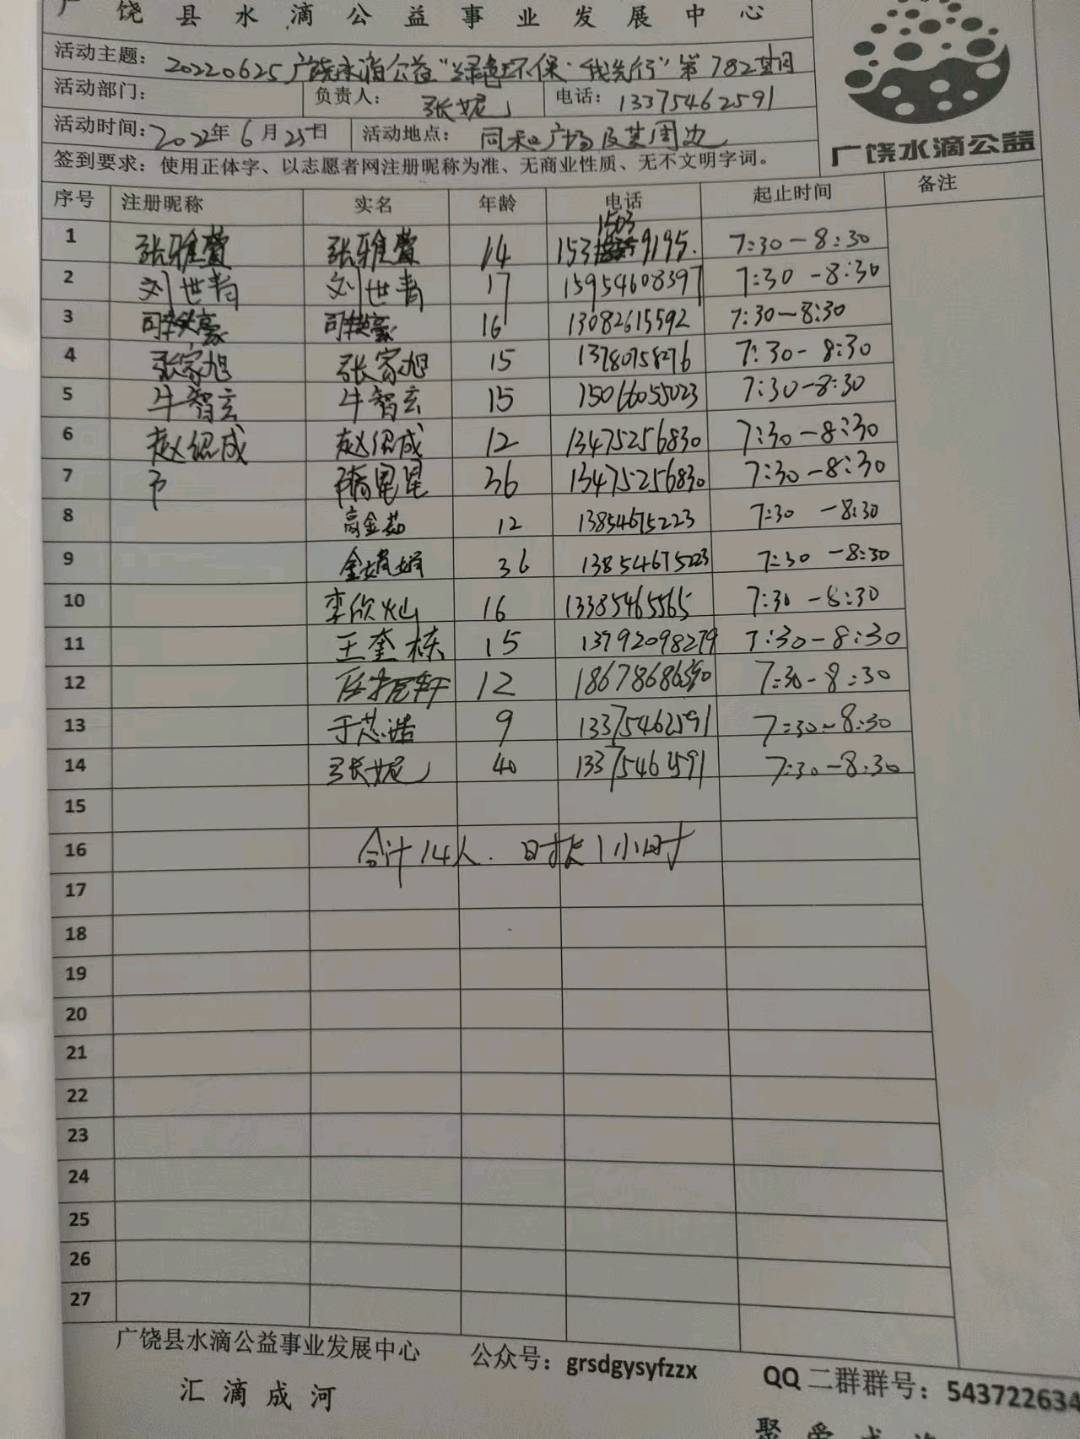 广饶县水滴公益事业发展中心
活动主题: 20220625广饶水滴公益"绿色环保·我先行"第782期
活动部门: 负责人: 张妮 电话: 13375462591
活动时间: 2022年6月25日 活动地点: 同和广场及其周边
签到要求: 使用正体字、以志愿者网注册昵称为准、无商业性质、无不文明字词。
广饶水滴公益
序号 注册昵称 实名 年龄 电话 起止时间 备注
1 张雅萱 张雅萱 14 7:30-8:30
2 刘世青 刘世青 17 15954608397 7:30-8:30
3 16 13082615592 7:30-8:30
4 张家旭 张家旭 15 13780758276 7:30-8:30
5 牛智玄 牛智玄 15 15066055023 7:30-8:30
6 赵绍成 赵绍成 12 13475256830 7:30-8:30
7 36 13475256830 7:30-8:30
8 高金茹 12 13854675223 7:30-8:30
9 36 13854675223 7:30-8:30
10 李欣灿 16 13385465565 7:30-8:30
11 王奎栋 15 13792098279 7:30-8:30
12 12 7:30-8:30
13 于芯诺 9 13375462591 7:30-8:30
14 张妮 40 13375462591 7:30-8:30
15
16 合计14人. 时长1小时
17
18
19
20
21
22
23
24
25
26
27
广饶县水滴公益事业发展中心 公众号: grsdgysyfzzx QQ二群群号: 543722634
汇滴成河
聚爱成海